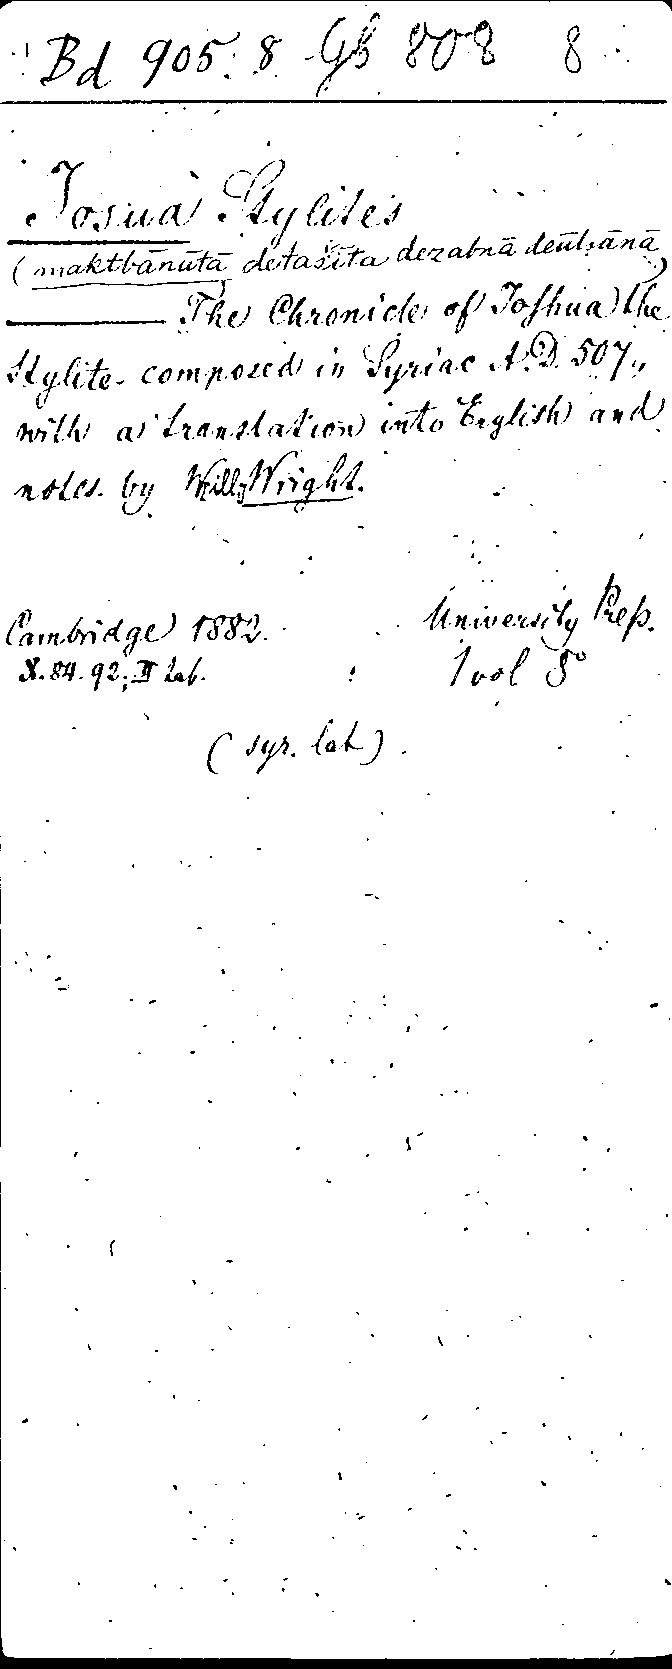 Bd 905. 8 Gb 808 8
Josua Stylites
(maktbānūtā detašīta dezabnā deūlṣānā)
The Chronicle of Joshua the
Stylite composed in Syriac A.D. 507,
with a translation into English and
notes by Will. Wright.
Cambridge 1882. University Press.
X. 84. 92; II
1 vol 8°
(syr. lat)